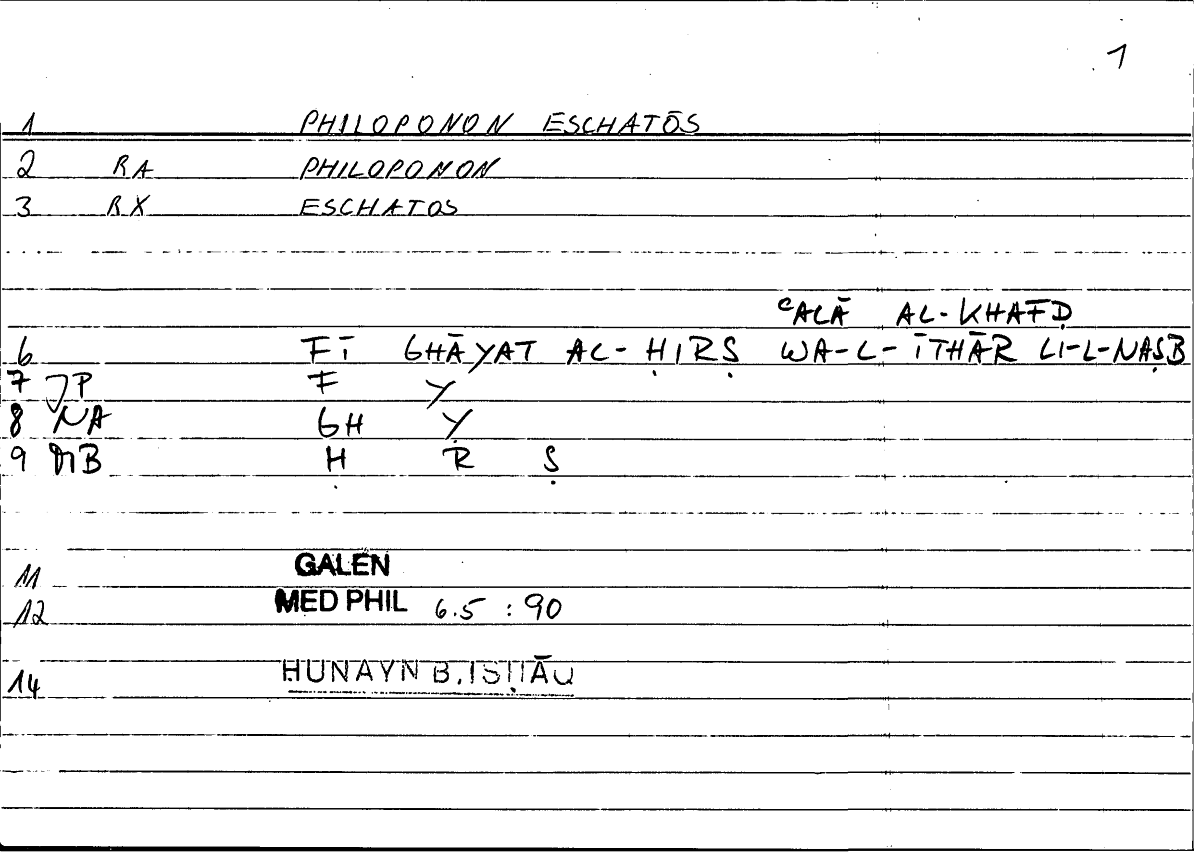 1
1 PHILOPONON ESCHATŌS
2 RA PHILOPONON
3 RX ESCHATOS
ᶜALĀ AL-KHAFḌ
6 FĪ GHĀYAT AL-ḤIRṢ WA-L-ĪTHĀR LI-L-NAṢB
7 JP F Y
8 NA GH Y
9 MB Ḥ R Ṣ
11 GALEN
12 MED PHIL 6.5 : 90
14 HUNAYN B. ISḤĀQ